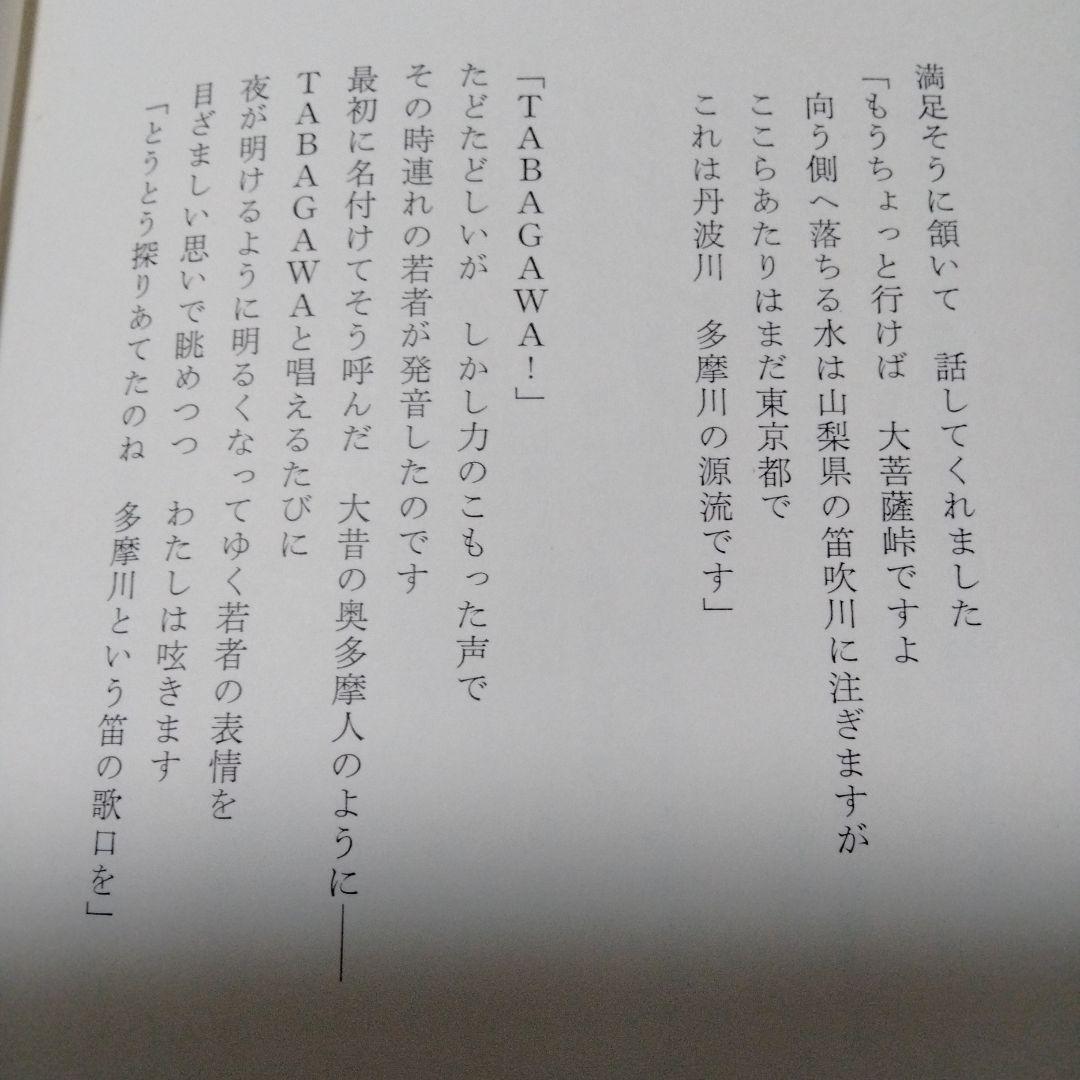 満足そうに頷いて　話してくれました
「もうちょっと行けば　大菩薩峠ですよ
向う側へ落ちる水は山梨県の笛吹川に注ぎますが
ここらあたりはまだ東京都で
これは丹波川　多摩川の源流です」
「TABAGAWA！」
たどたどしいが　しかし力のこもった声で
その時連れの若者が発音したのです
最初に名付けてそう呼んだ　大昔の奥多摩人のように――
TABAGAWAと唱えるたびに
夜が明けるように明るくなってゆく若者の表情を
目ざましい思いで眺めつつ　わたしは呟きます
「とうとう探りあてたのね　多摩川という笛の歌口を」